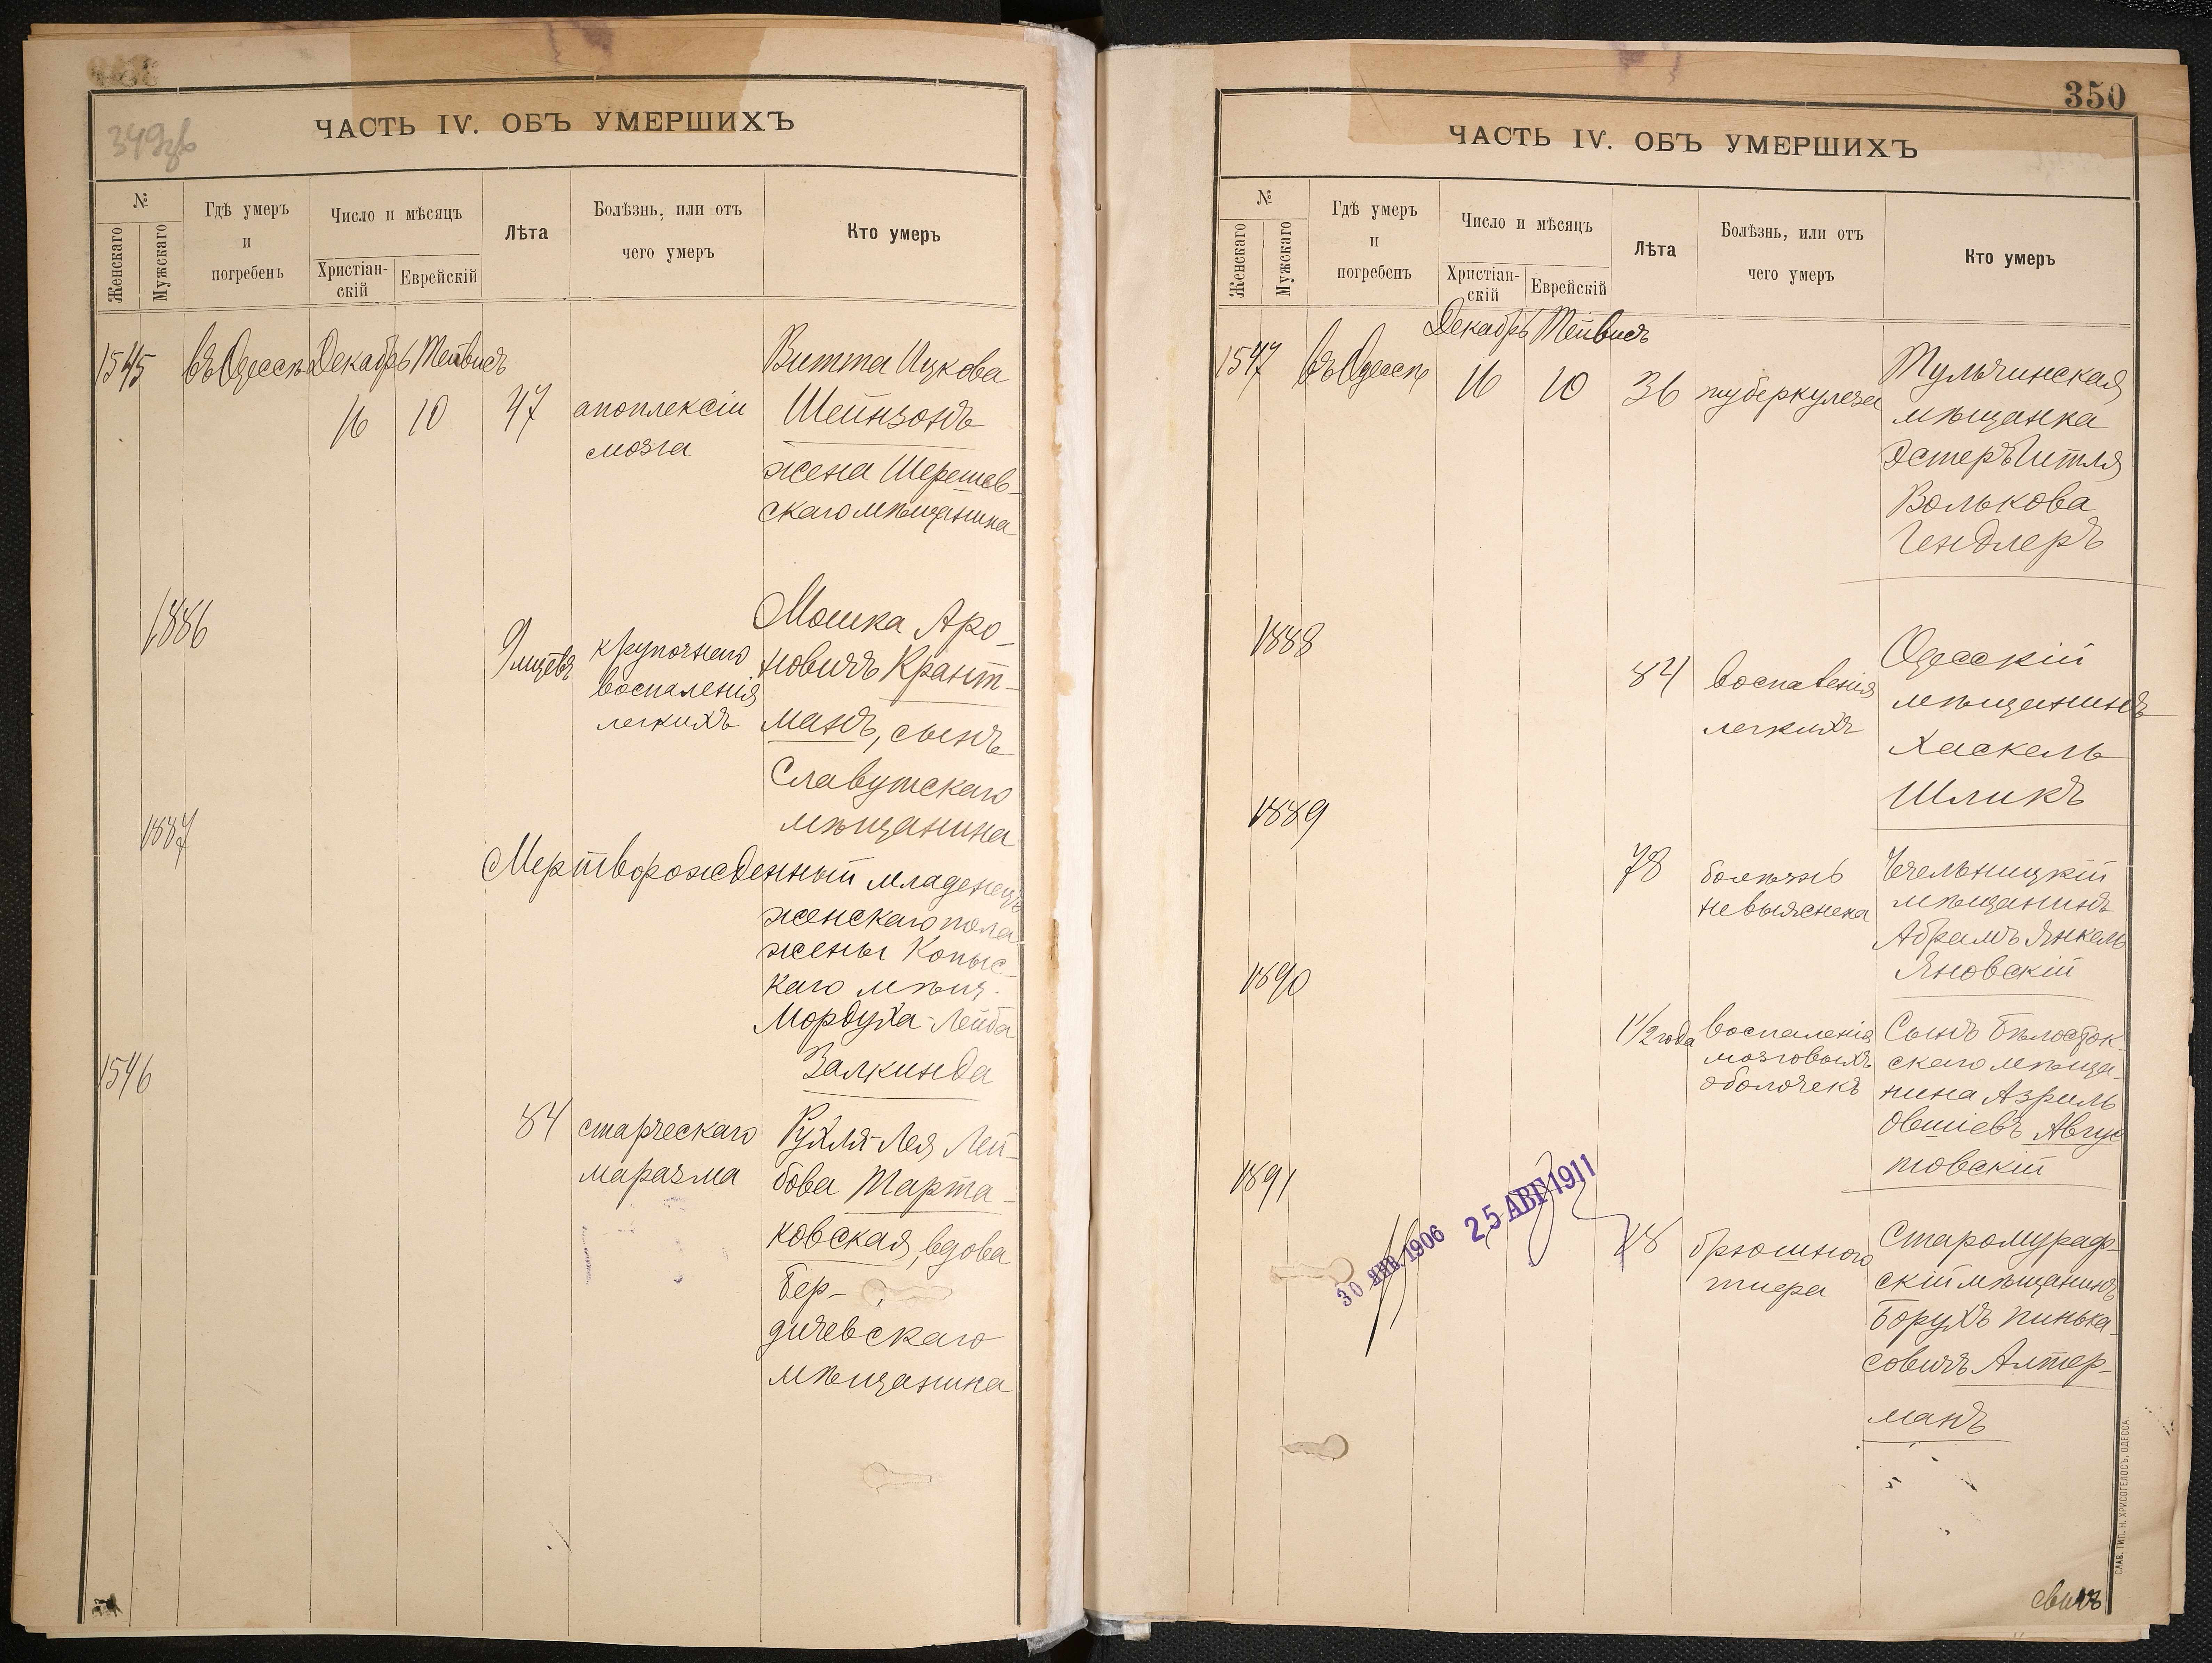 349зв
ЧАСТЬ IV. ОБЪ УМЕРШИХЪ
№
Женскаго
Мужскаго
Гдѣ умеръ
и
погребенъ
Число и мѣсяцъ
Христіан-
скій
Еврейскій
Лѣта
Болѣзнь, или отъ
чего умеръ
Кто умеръ
1545 въ Одессѣ Декабрь Тейвисъ
16 10 47 апоплексіи
мозга
Витта Ицкова
Шейнзонъ
жена Шерешев-
скаго мѣщанина
1886
9 мцевъ крупочнаго
воспаленія
легкихъ
Мошка Аро-
новичъ Крант-
манъ, сынъ
Славутскаго
мѣщанина
1887
Мертворожденный младенецъ
женскаго пола
жены Копыс-
каго мѣщ.
Мордуха-Лейба
Залкинда
1546
84 старческаго
маразма
Рухля-Лея Лей-
бова Марта-
ковская, вдова
Бер-
дичевскаго
мѣщанина
350
ЧАСТЬ IV. ОБЪ УМЕРШИХЪ
№
Женскаго
Мужскаго
Гдѣ умеръ
и
погребенъ
Число и мѣсяцъ
Христіан-
скій
Еврейскій
Лѣта
Болѣзнь, или отъ
чего умеръ
Кто умеръ
Декабрь Тейвисъ
1547 въ Одессѣ 16 10 36 туберкулеза
Тульчинская
мѣщанка
Эстеръ Итля
Волькова
Гендлеръ
1888
84 воспаленія
легкихъ
Одесскій
мѣщанинъ
Хаскель
Шликъ
1889
78 болѣзнь
невыяснена
Чечельницкій
мѣщанинъ
Абрамъ Янкель
Яновскій
1890
1 1/2 года воспаленія
мозговыхъ
оболочекъ
Сынъ Бѣлосток-
скаго мѣща-
нина Азриль
Овшіевъ Авгус
товскій
1891
30 ЯНВ. 1906
25 АВГ 1911
18 брюшного
тифа
Старомураф-
скій мѣщанинъ
Борухъ Пинька-
совичъ Алтер-
манъ
СЛАВ. ТИП. Н. ХРИСОГЕЛОСЪ, ОДЕССА.